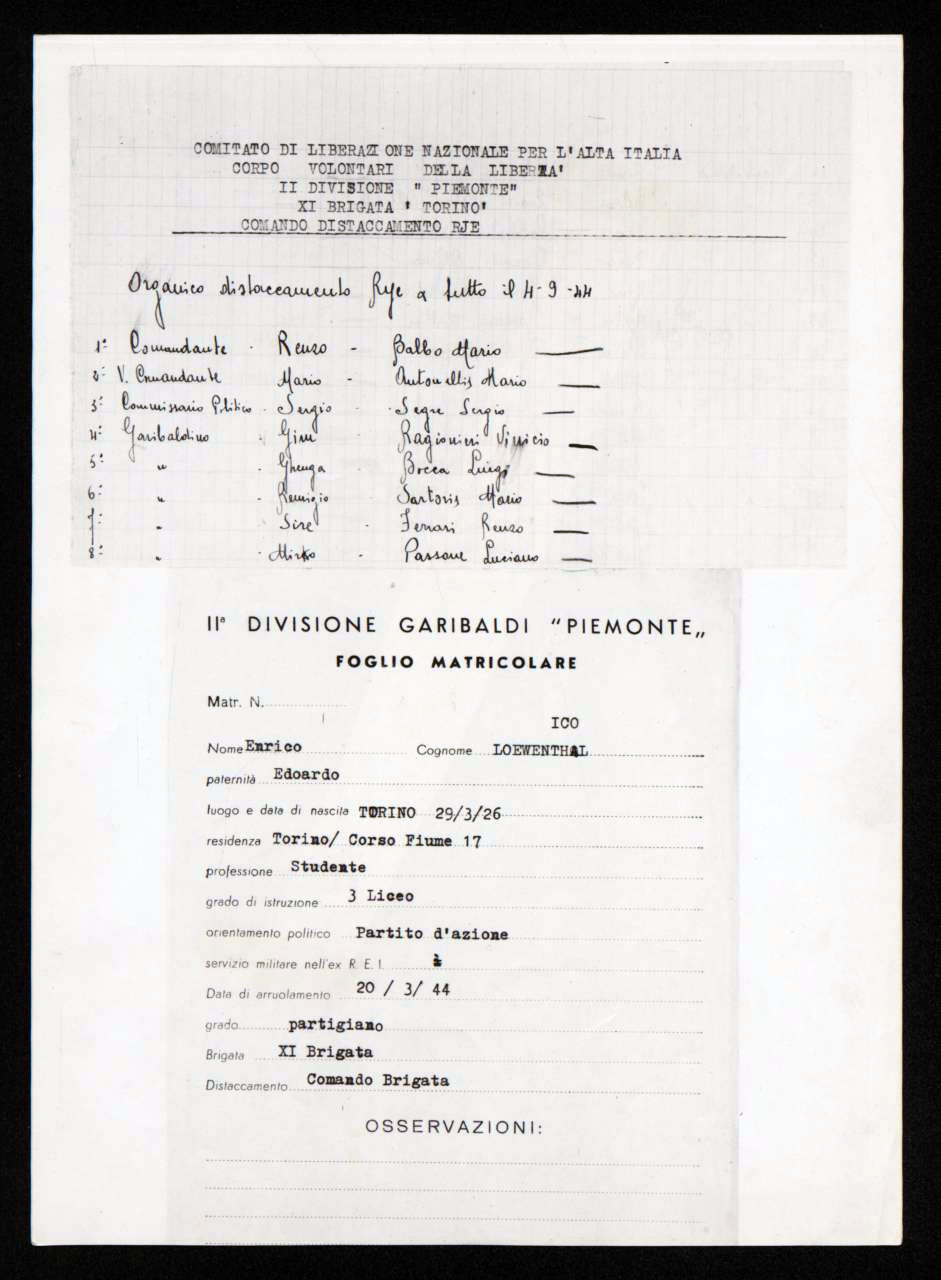 COMITATO DI LIBERAZIONE NAZIONALE PER L'ALTA ITALIA
CORPO VOLONTARI DELLA LIBERTA'
II DIVISIONE " PIEMONTE"
XI BRIGATA ' TORINO'
COMANDO DISTACCAMENTO RJE
Organico distaccamento Rje a tutto il 4-9-44
1° Comandante - Renzo - Balbo Mario
2° V. Comandante Mario - Antonellis Mario
3° Commissario Politico - Sergio - Segre Sergio
4° Garibaldino - Gim Ragionieri Vinicio
5° " - Ghenga - Bocca Luigi
6° " - Remigio Sartoris Mario
7° " Sire - Ferrari Renzo
8° " - Mirko - Passone Luciano
IIª DIVISIONE GARIBALDI "PIEMONTE„
FOGLIO MATRICOLARE
Matr. N.
ICO
Nome Enrico Cognome LOEWENTHAL
paternità Edoardo
luogo e data di nascita TORINO 29/3/26
residenza Torino/ Corso Fiume 17
professione Studente
grado di istruzione 3 Liceo
orientamento politico Partito d'azione
servizio militare nell'ex R. E. I.
Data di arruolamento 20 / 3/ 44
grado partigiano
Brigata XI Brigata
Distaccamento Comando Brigata
OSSERVAZIONI: